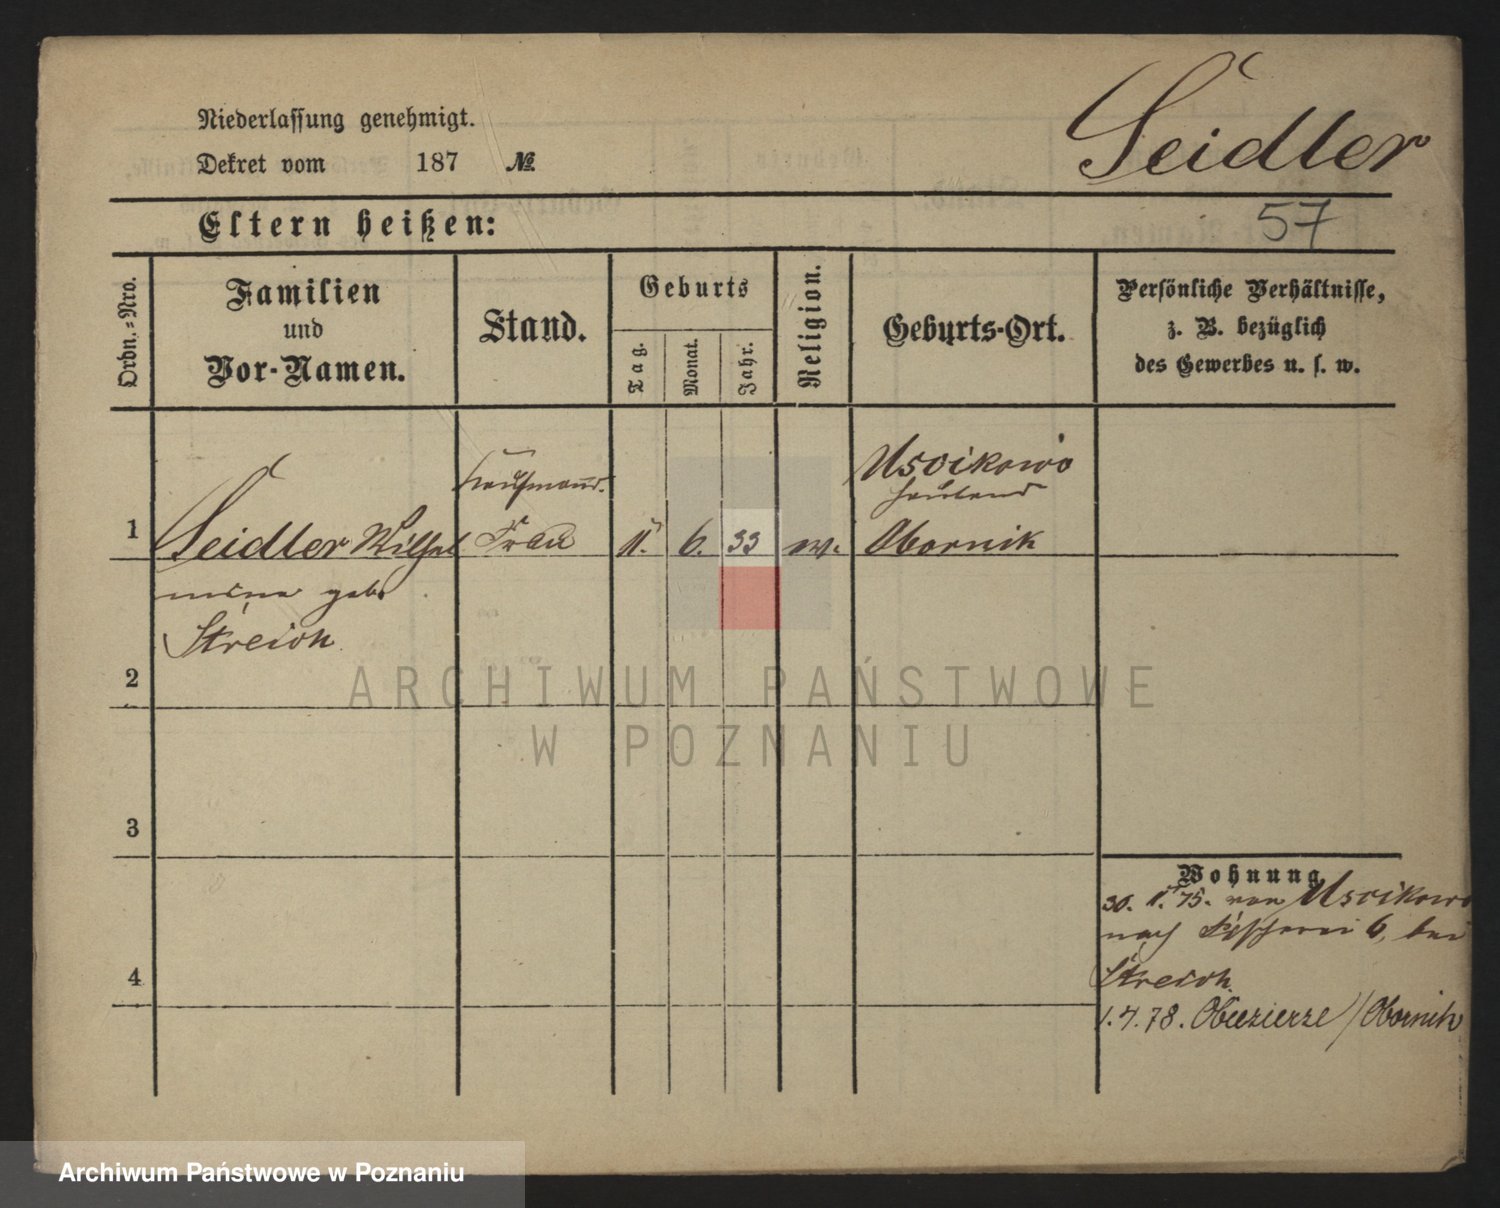 Seidler
Niederlassung genehmigt.
Dekret vom 187 №
Eltern heißen:
57
Ordn.-Nro.
Familien
und
Vor-Namen.
Stand.
Geburts
Tag.
Monat.
Jahr.
Religion.
Geburts-Ort.
Persönliche Verhältnisse,
z. B. bezüglich
des Gewerbes u. s. w.
1
Seidler Wilhel
mine geb.
Streich
Kaufmann.
Frau
6.
33
Uscikowo
Hauland
Obornik
2
3
4
Wohnung
30. 75. von Uscikowo
nach Fischerei 6, bei
Streich
78. Obiezierze / Obornik
ARCHIWUM PAŃSTWOWE
W POZNANIU
Archiwum Państwowe w Poznaniu